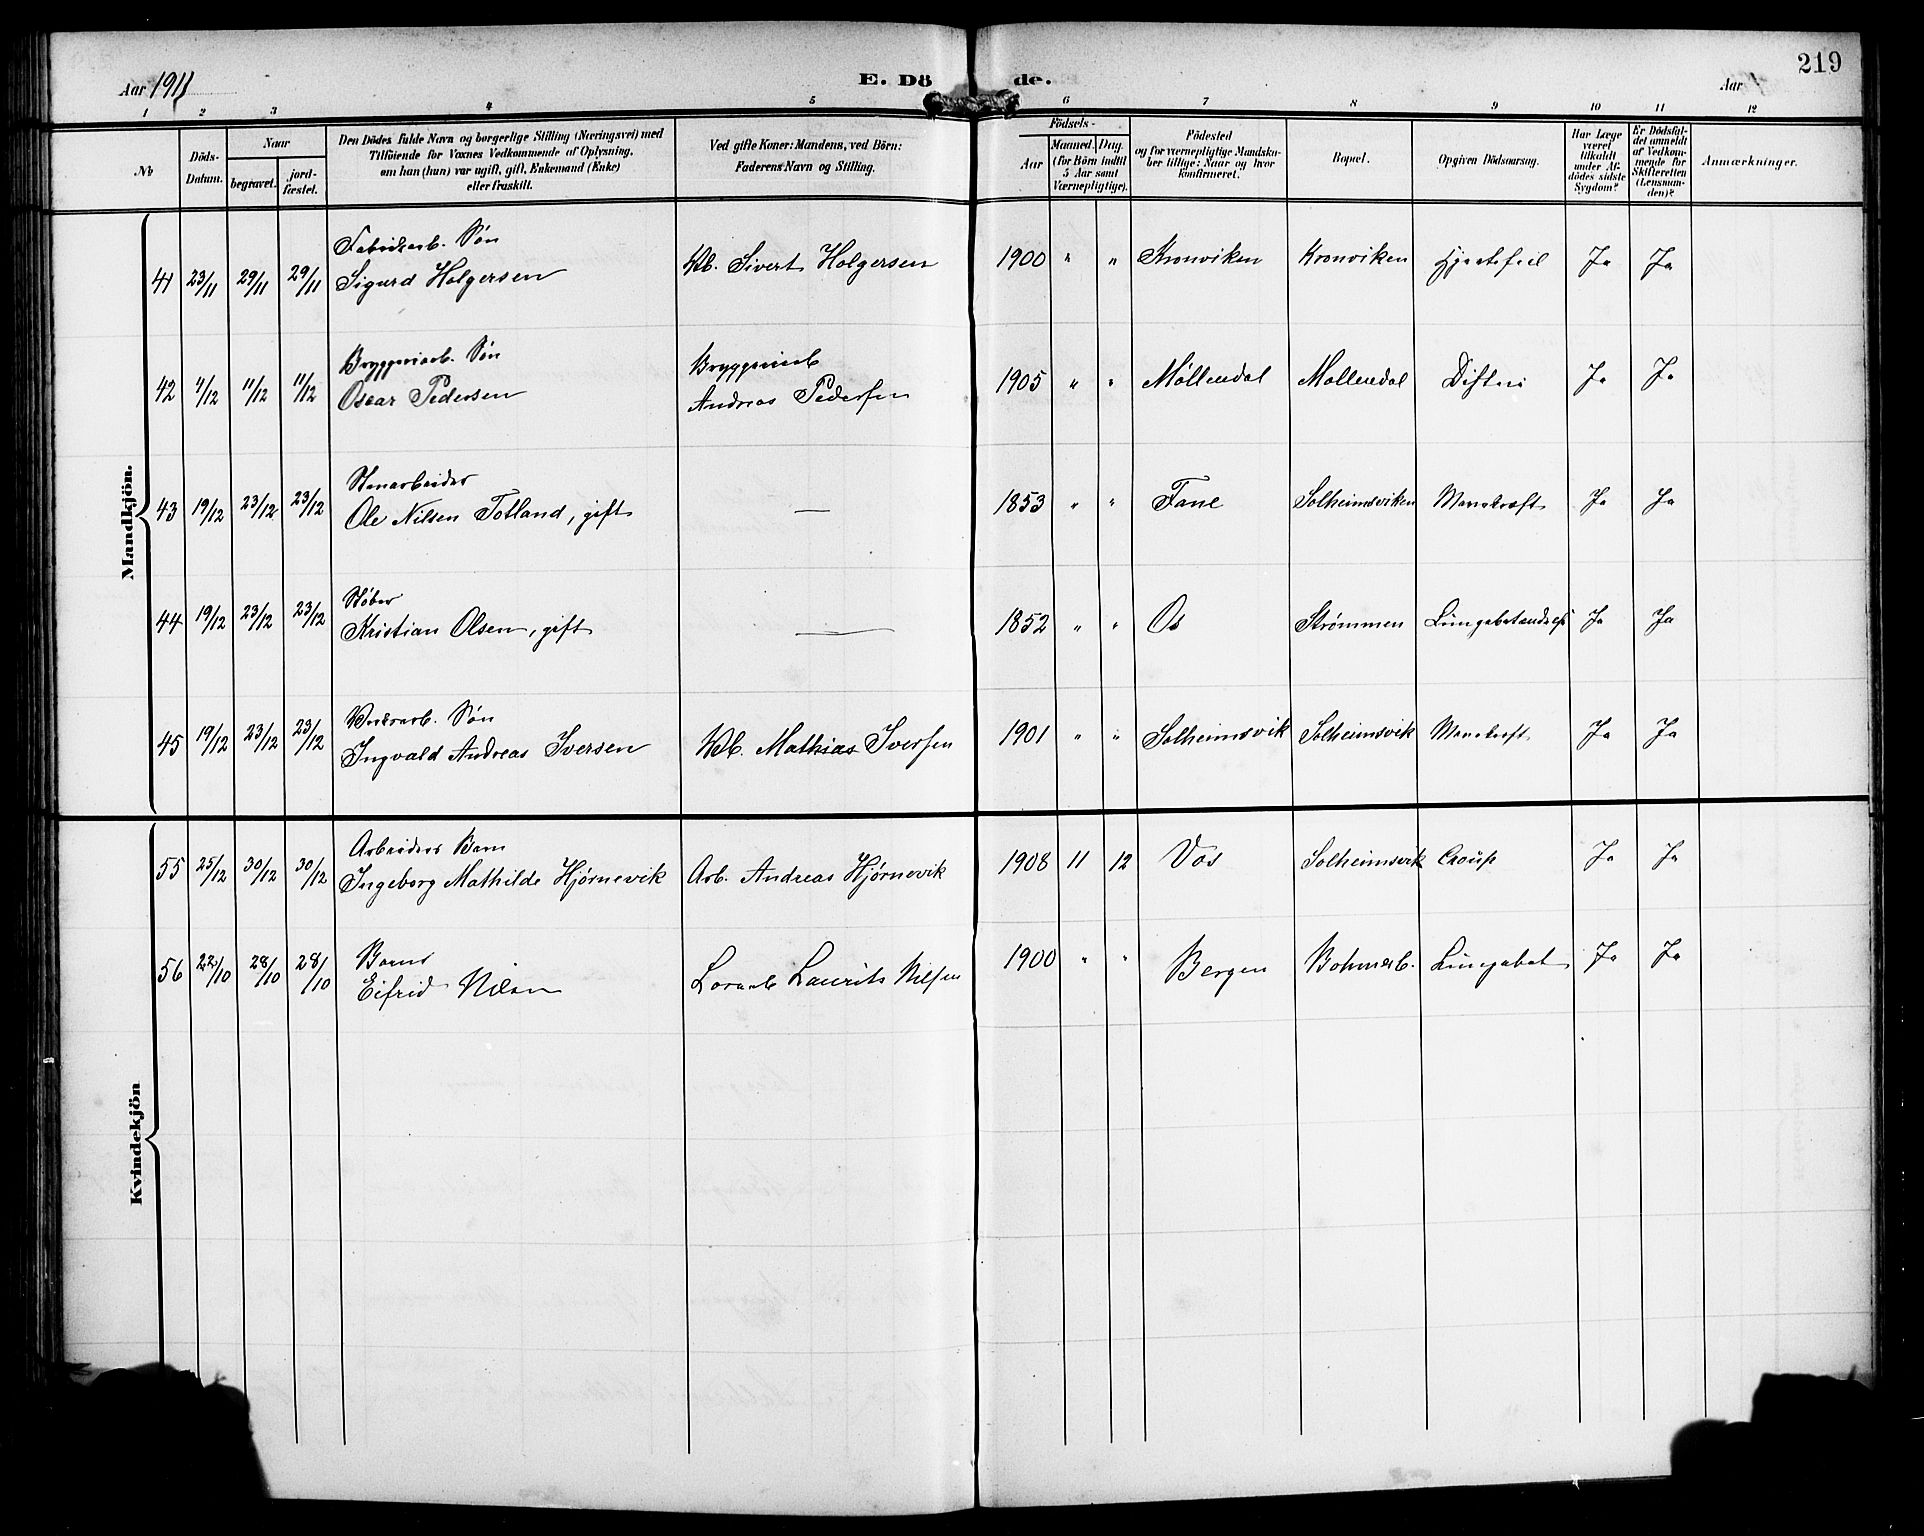 219
Aar 1911
E. Dö
de.
Aar
1 2 3 4 5 6 7 8 9 10 11 12
No
Döds-Datum.
Naar
begravet.
jord-fæstet.
Den Dödes fulde Navn og borgerlige Stilling (Næringsvei) med
Tilföiende for Voxnes Vedkommende af Oplysning,
om han (hun) var ugift, gift, Enkemand (Enke)
eller fraskilt.
Ved gifte Koner: Mandens, ved Börn:
Faderens Navn og Stilling.
Födsels-
Aar
Maaned. Dag.
(for Börn indtil
5 Aar samt
Værnepligtige).
Födested
og for værnepligtige Mandska-
ber tillige: Naar og hvor
konfirmeret.
Bopæl.
Opgiven Dödsaarsag.
Har Læge
været
tilkaldt
under Af-
dödes sidste
Sygdom?
Er Dödsfal-
det anmeldt
af Vedkom-
mende for
Skifteretten
(Lensman-
den)?
Anmærkninger.
Mandkjön.
Fabrikarb. Søn
41 23/11 29/11 29/11 Sigurd Holgersen Sivert Holgersen 1900 " " Kronviken Kronviken Ja Ja
Bryggeriarb. Søn Bryggeriarb
42 11/12 11/12 Oscar Pedersen Andreas Pedersen 1905 " " Möllendal Möllendal Difteri Ja Ja
Stenarbeider
43 19/12 23/12 23/12 Ole Nilsen Totland, gift — 1853 " " Fane Solheimsviken Mavekræft Ja Ja
Støber
44 19/12 23/12 23/12 Kristian Olsen, gift — 1852 " " Os Strømmen Ja Ja
Søn
45 19/12 23/12 23/12 Ingvald Andreas Iversen Mathias Iversen 1901 " " Solheimsvik Solheimsvik Ja Ja
Kvindekjön
Arbeiders Barn
55 25/12 30/12 30/12 Ingeborg Mathilde Hjørnevik Arb. Andreas Hjørnevik 1908 11 12 Vos Solheimsvik Croup Ja Ja
56 22/10 28/10 28/10 Laurits Nilsen 1900 " " Bergen Ja Ja